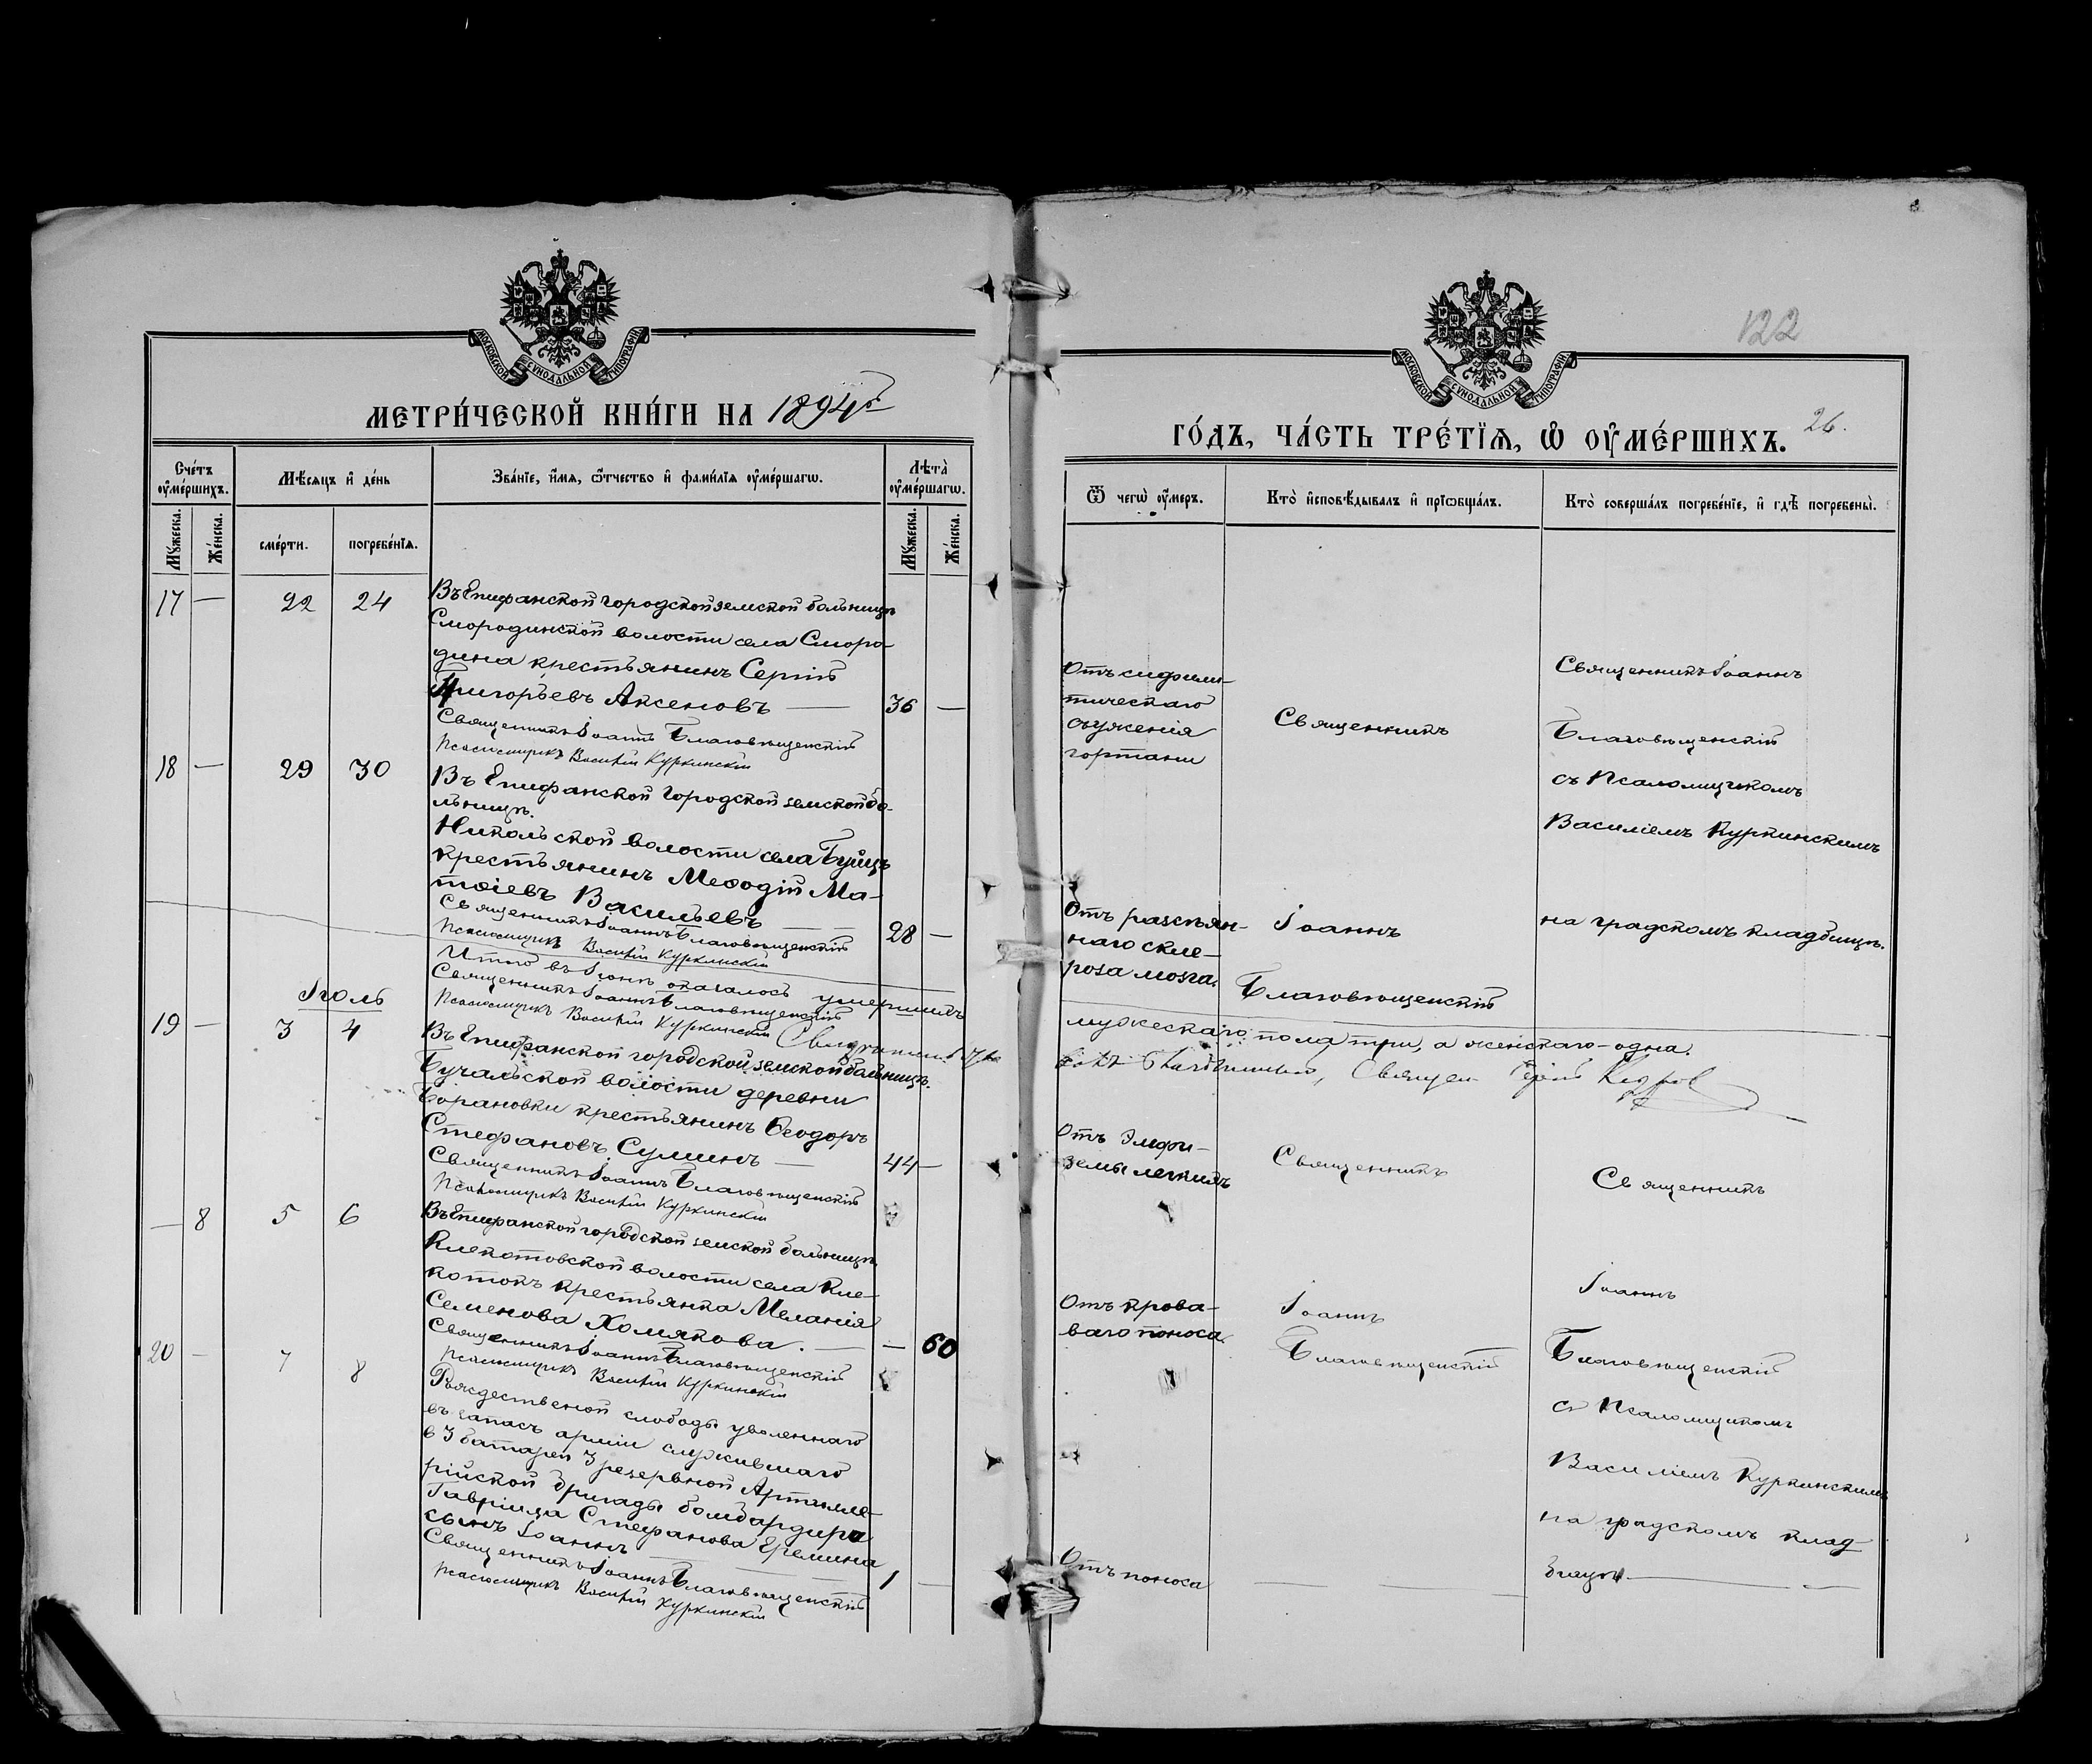 МОСКОВСКОЙ СУНОДАЛЬНОЙ ТИПОГРАФІИ
МЕТРИ́ЧЕСКОЙ КНИ́ГИ НА 1894й
Сче́тъ оумéршихъ.
Мѣ́сяцъ и де́нь
Зва́нїе, и́мя, ѿтчество и фами́лїя оумéршагѡ.
Лѣта̀ оумéршагѡ.
Му́жеска.
Же́нска.
сме́рти.
погребе́нїя.
Му́жеска.
Же́нска.
17 — 22 24 Въ Епифанской городской земской больницѣ
Смородинской волости села Сморо-
дина крестьянинъ Сергій
Григорьевъ Аксеновъ — 36 —
Священникъ Іоаннъ Благовѣщенскій
Псаломщикъ Василій Куркинскій
18 — 29 30 Въ Епифанской городской земской бо-
льницѣ.
Никольской волости села Буйцъ
крестьянинъ Меѳодій Ма-
тѳіевъ Васильевъ — 28 —
Священникъ Іоаннъ Благовѣщенскій
Псаломщикъ Василій Куркинскій
Итого въ Іюнѣ оказалось умершихъ
Священникъ Іоаннъ Благовѣщенскій
Псаломщикъ Василій Куркинскій
Іюль
19 — 3 4 Въ Епифанской городской земской больницѣ.
Бучальской волости деревни
Барановки крестьянинъ Ѳеодоръ
Стефановъ Сулинъ — 44 —
Священникъ Іоаннъ Благовѣщенскій
Псаломщикъ Василій Куркинскій
— 8 5 6 Въ Епифанской городской земской больницѣ
Клекотовской волости села Кле-
котокъ крестьянка Меланія
Семенова Хомякова. — — 60
Священникъ Іоаннъ Благовѣщенскій
Псаломщикъ Василій Куркинскій
20 — 7 8 Рождественой слободы уволеннаго
въ запасъ арміи служившаго
в 3 батареи 3 резервной Артилле-
рійской бригады бомбардира
Гавріила Стефанова Еремина
сынъ Іоаннъ — 1 —
Священникъ Іоаннъ Благовѣщенскій
Псаломщикъ Василій Куркинскій
122
МОСКОВСКОЙ СУНОДАЛЬНОЙ ТИПОГРАФІИ
ГО́ДЪ, ЧА́СТЬ ТРЕ́ТЇЯ, Ѡ ОУМЕ́РШИХЪ. 26.
Ѿ чегѡ̀ оу́меръ.
Кто̀ и̓сповѣ́дывалъ и̓ прїѡбща́лъ.
Кто̀ соверша́лъ погребе́нїе, и̓ гдѣ̀ погребены̀.
Отъ сифили-
тическаго
съуженія
гортани
Священникъ
Священникъ Іоаннъ
Благовѣщенскій
съ Псаломщикомъ
Василіемъ Куркинскимъ
Отъ разсѣян-
наго скле-
роза мозга.
Іоаннъ
Благовѣщенскій
на градскомъ кладбищѣ.
мужескаго пола три, а женскаго-одна.
Священ. Кедров
Отъ Эмфи-
земы легкихъ
Священникъ
Священникъ
Отъ крова-
ваго поноса.
Іоаннъ
Благовѣщенскій
Іоаннъ
Благовѣщенскій
съ Псаломщикомъ
Василіемъ Куркинскимъ
на градскомъ клад-
бищѣ —
Отъ поноса —